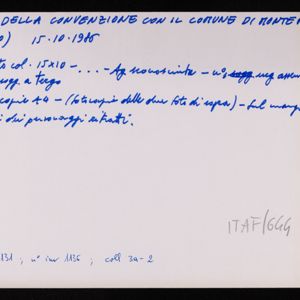 DELLA CONVENZIONE CON IL COMUNE DI MONTE
) 15.10.1986
col. 15x10 - ... - Ag. sconosciuta - n°
a tergo
copie A4 - (fotocopie delle due foto di sopra) - sul marg
dei personaggi ritratti.
ITAF/6GG
131 ; n° inv 1136 ; coll 3a-2